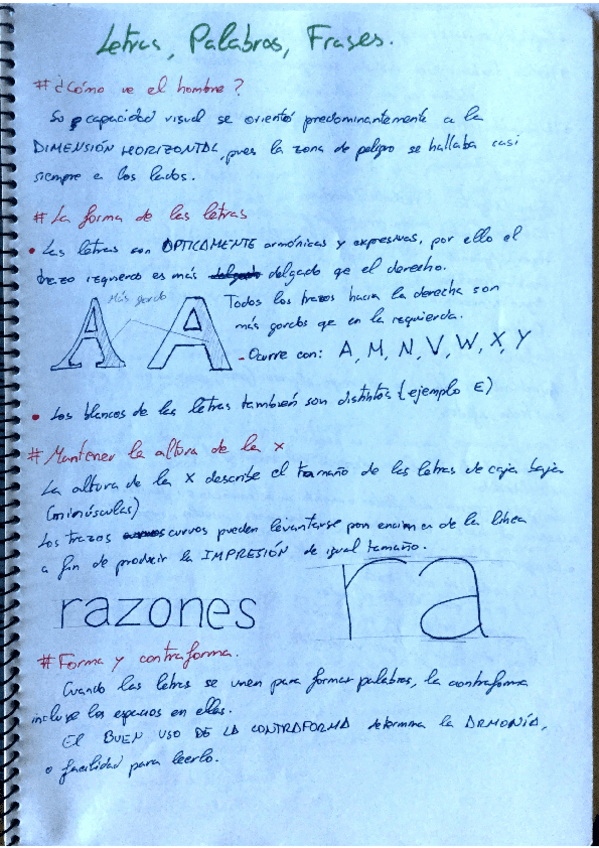 Letras, Palabras, Frases.
# ¿Cómo ve el hombre?
Su capacidad visual se orientó predominantemente a la
DIMENSIÓN HORIZONTAL, pues la zona de peligro se hallaba casi
siempre a los lados.
# La forma de las letras
• Las letras son OPTICAMENTE armónicas y expresivas, por ello el
trazo izquierdo es más delgado qe el derecho.
Más gordo
A A
Todos los trazos hacia la derecha son
más gordos qe en la izquierda.
- Ocurre con: A, M, N, V, W, X, Y
• Los blancos de las letras también son distintos (ejemplo E)
# Mantener la altura de la x
La altura de la X describe el tamaño de las letras de caja baja
(minúsculas)
Los trazos curvos pueden levantarse por encima de la línea
a fin de producir la IMPRESIÓN de igual tamaño.
razones
ra
# Forma y contraforma.
Cuando las letras se unen para formar palabras, la contraforma
incluye los espacios en ellas.
El BUEN USO DE LA CONTRAFORMA determina la ARMONÍA,
o facilidad para leerlo.